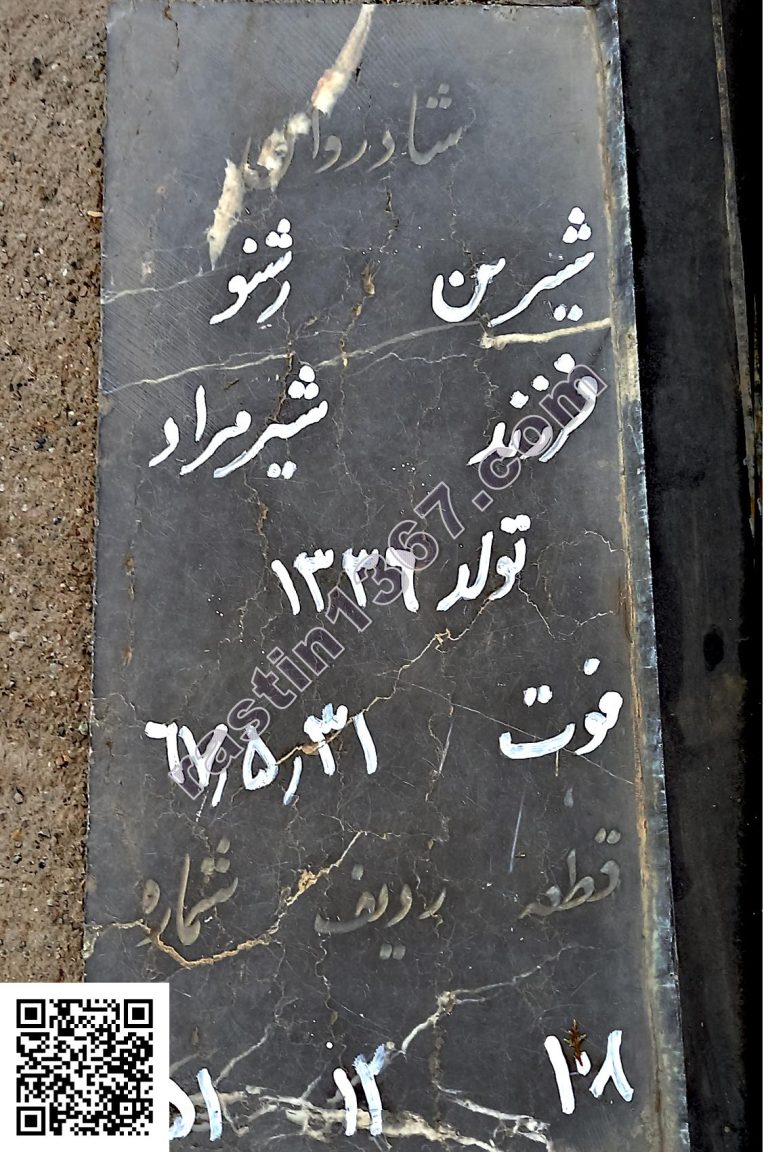 شادروان
شیرین رشنو
فرزند شیرمراد
تولد ۱۳۳۹
فوت ۶۷٫۵٫۳۱
قطعه ردیف شماره
۱۰۸ ۱۲ ۵۱
rastin1367.com